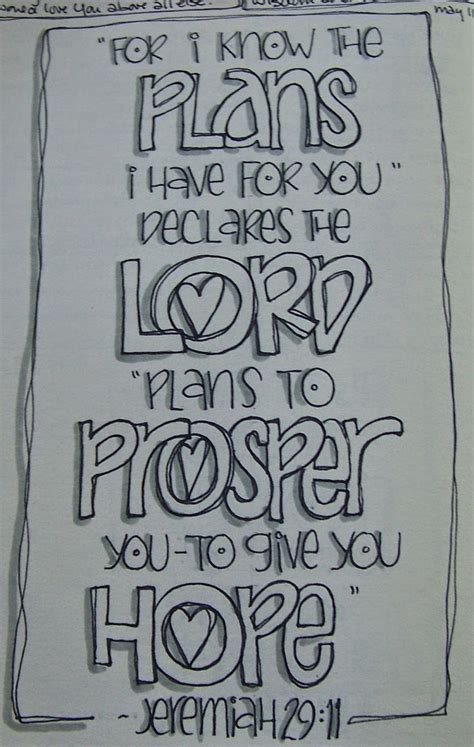 love you above all else.
may 11
"FOR i KNOW THE
PLANS
i HAVE FOR YOU"
DECLARES THE
LORD
"PLANS TO
PROSPER
YOU-TO GIVE YOU
HOPE"
- JEREMIAH 29:11